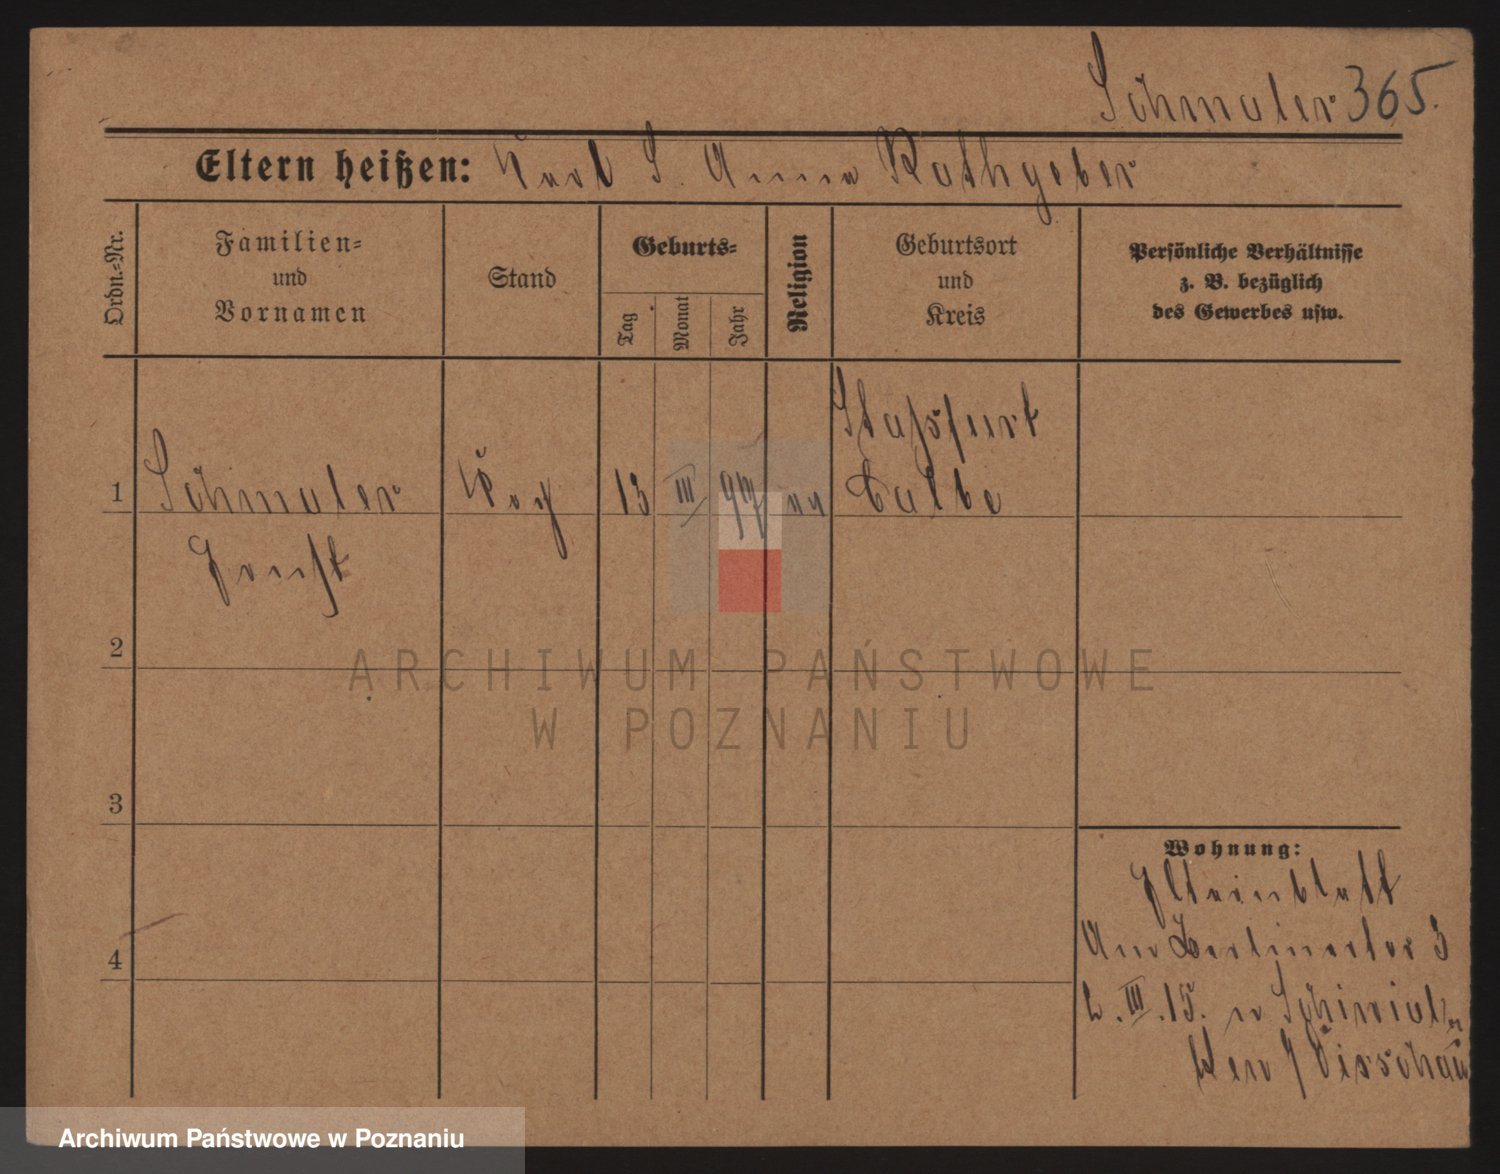 Schmaler 365.
Eltern heißen: Karl S. Anna Rathgeber
Ordn.=Nr.
Familien=
und
Vornamen
Stand
Geburts=
Tag
Monat
Jahr
Religion
Geburtsort
und
Kreis
Persönliche Verhältnisse
z. B. bezüglich
des Gewerbes usw.
1 Schmaler
Ernst
13 III 97
Staßfurt
Calbe
2
3
4
Wohnung:
Elternblatt
Am Berlinertor 3
2. III. 15. n
Dirschau
ARCHIWUM PAŃSTWOWE
W POZNANIU
Archiwum Państwowe w Poznaniu